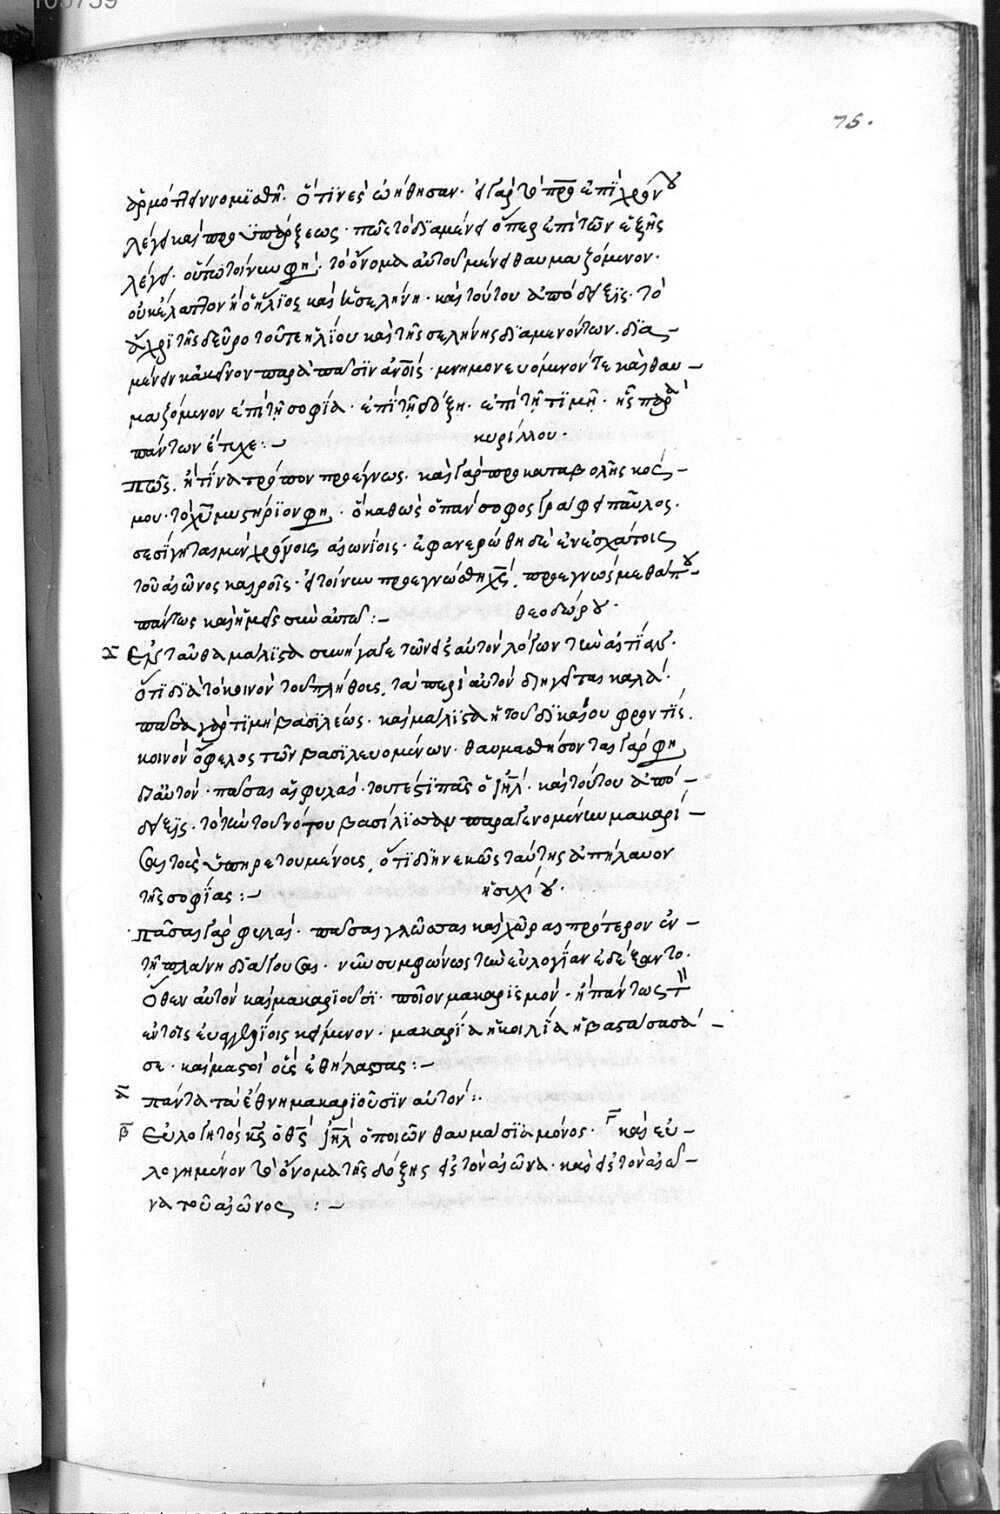 105759
75.
ἁρμόττειν νομισθῇ. ὅτινες ᾠήθησαν. εἰ γὰρ τὸ πρὸ ἐπὶ χρόνου
λέγει καὶ πρὸ ὑπάρξεως. πῶς τὸ διαμένει ὅπερ ἐπὶ τῶν ἑξῆς
λέγει. οὕτω τοίνυν φησί. τὸ ὄνομα αὐτοῦ μένει θαυμαζόμενον.
οὐκ ἔλαττον ἢ ὁ ἥλιος καὶ ἡ σελήνη. καὶ τούτου ἀπόδειξις. τὸ
ἄχρι τῆς δεῦρο τοῦ τε ἡλίου καὶ τῆς σελήνης διαμενόντων. δια-
μένειν κἀκεῖνον παρὰ πᾶσιν ἀνοις. μνημονευόμενόν τε καὶ θαυ-
μαζόμενον ἐπὶ τῇ σοφίᾳ. ἐπὶ τῇ δόξῃ. ἐπὶ τῇ τιμῇ. ἧς παρὰ
πάντων ἔτυχε:- κυρίλλου.
πῶς. ἢ τίνα τρόπον προέγνως. καὶ γὰρ πρὸ καταβολῆς κόσ-
μου. τὸ χῦ μυστήριόν φη. ὃ καθὼς ὁ πάνσοφος γράφει παῦλος.
σεσίγηται μὲν χρόνοις αἰωνίοις. ἐφανερώθη δὲ ἐν ἐσχάτοις
τοῦ αἰῶνος καιροῖς. εἰ τοίνυν προεγνώσθη χς, προεγνώσμεθά που
πάντως καὶ ἡμεῖς σὺν αὐτῷ:- θεοδώρου.
Ἐνταῦθα μάλιστα συνήγαγε τῶν εἰς αὐτὸν λόγων τὴν αἰτίαν.
ὅτι διὰ τὸ κοινὸν τοῦ πλήθους, τὰ περὶ αὐτὸν διηγεῖται καλά.
πᾶσα γὰρ τιμὴ βασιλέως. καὶ μάλιστα ἡ τοῦ δικαίου φροντίς.
κοινὸν ὄφελος τῶν βασιλευομένων. θαυμασθήσονται γὰρ φη
δι αὐτὸν. πᾶσαι αἱ φυλαί. τουτέστι πᾶς ὁ ιηλ. καὶ τούτου ἀπό-
δειξις. τὸ τὴν τοῦ νότου βασίλισσαν παραγενομένην μακαρί-
σαι τοὺς ὑπηρετουμένους, ὅτι διηνεκῶς ταύτης ἀπήλαυον
τῆς σοφίας:- ἡσυχίου.
πᾶσαι γὰρ φυλαί. πᾶσαι γλῶσσαι καὶ χῶραι πρότερον ἐν-
τῇ πλάνῃ διάγουσαι. νῦν συμφώνως τὴν εὐλογίαν ἐδέξαντο.
ὅθεν αὐτὸν καὶ μακαριοῦσι. ποῖον μακαρισμόν. ἢ πάντως τὸν
ἐν τοῖς εὐαγγελίοις κείμενον. μακαρία ἡ κοιλία ἡ βαστάσασά-
σε. καὶ μαστοὶ οὓς ἐθήλασας:-
πάντα τὰ ἔθνη μακαριοῦσιν αὐτόν:.
Εὐλογητὸς κς ὁ θς ιηλ ὁ ποιῶν θαυμάσια μόνος. καὶ εὐ-
λογημένον τὸ ὄνομα τῆς δόξης εἰς τὸν αἰῶνα. καὶ εἰς τὸν αἰῶ-
να τοῦ αἰῶνος :-